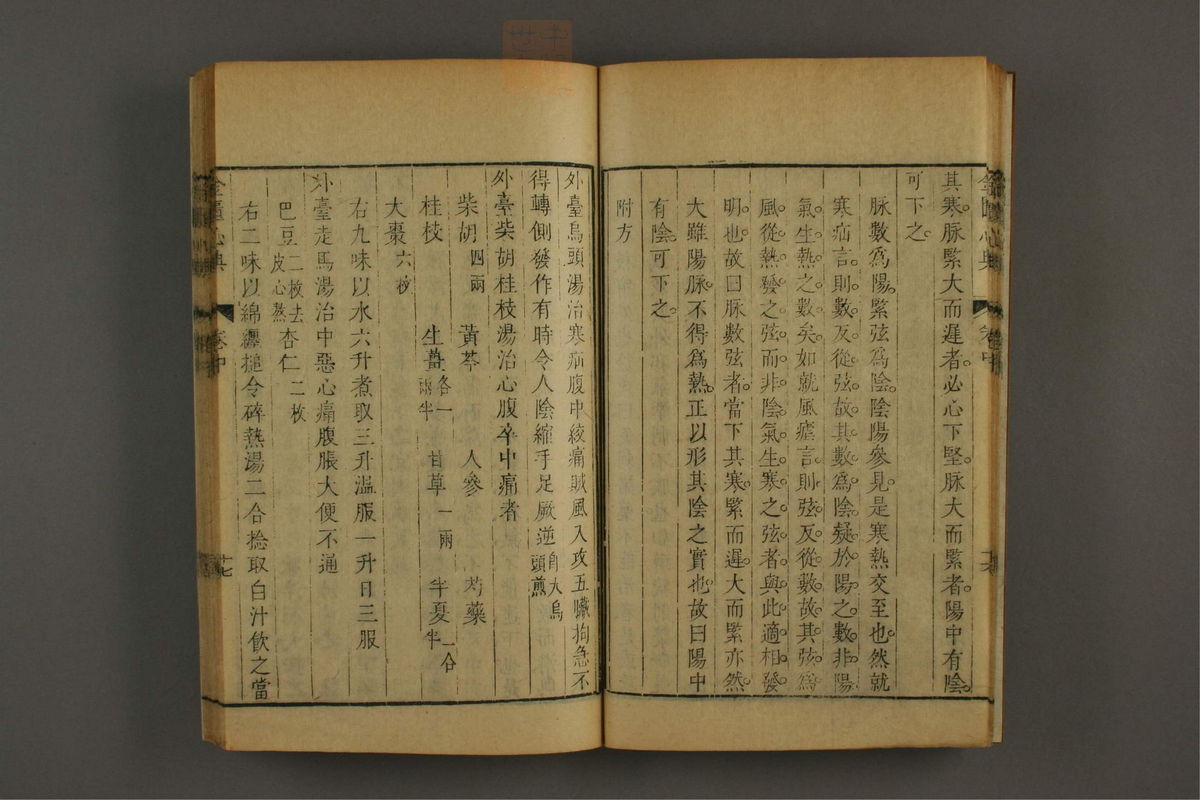 其寒。脉緊大而遲者。必心下堅。脉大而緊者。陽中有陰。
可下之。
脉數爲陽。緊弦爲陰。陰陽參見。是寒熱交至也。然就
寒疝言。則數反從弦。故其數爲陰凝於陽之數。非陽
氣生熱之數矣。如就風瘧言。則弦反從數。故其弦爲
風從熱發之弦。而非陰氣生寒之弦者。與此適相發
明也。故曰脉數弦者。當下其寒。緊而遲。大而緊亦然。
大雖陽脉。不得爲熱。正以形其陰之實也。故曰陽中
有陰。可下之。
附方
外臺烏頭湯治寒疝腹中絞痛賊風入攻五臟拘急不
得轉側發作有時令人陰縮手足厥逆 即大烏頭煎
外臺柴胡桂枝湯治心腹卒中痛者
柴胡四兩 黃芩 人參 芍藥
桂枝 生薑各一兩半 甘草一兩 半夏一合半
大棗六枚
右九味以水六升煮取三升溫服一升日三服
外臺走馬湯治中惡心痛腹脹大便不通
巴豆二枚去皮心熬 杏仁二枚
右二味以綿纏搥令碎熱湯二合捻取白汁飲之當
金匱心典 卷中 十七